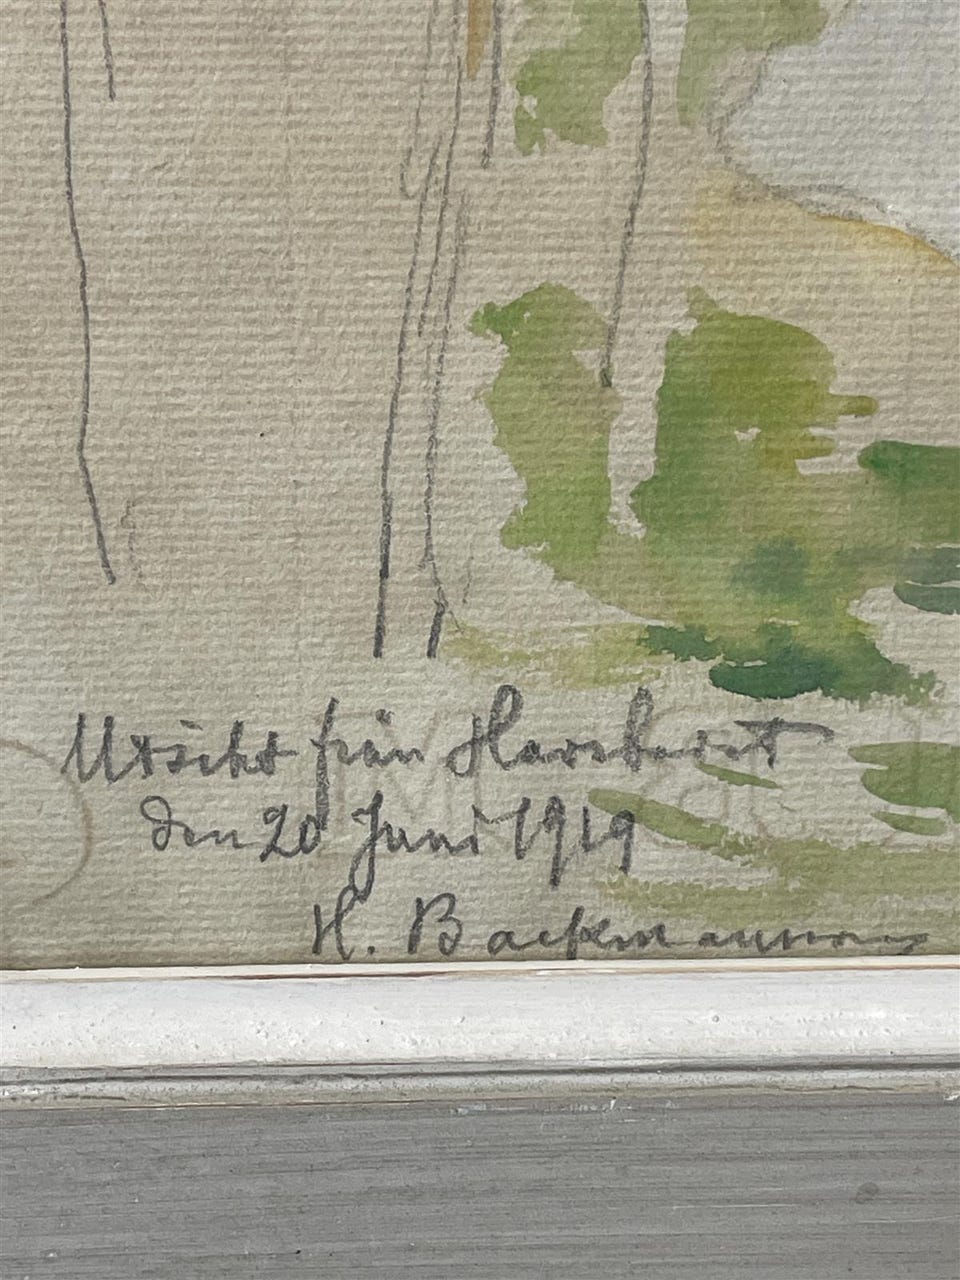 Utsikt från
den 20 Juni 1919
H. Backmansson